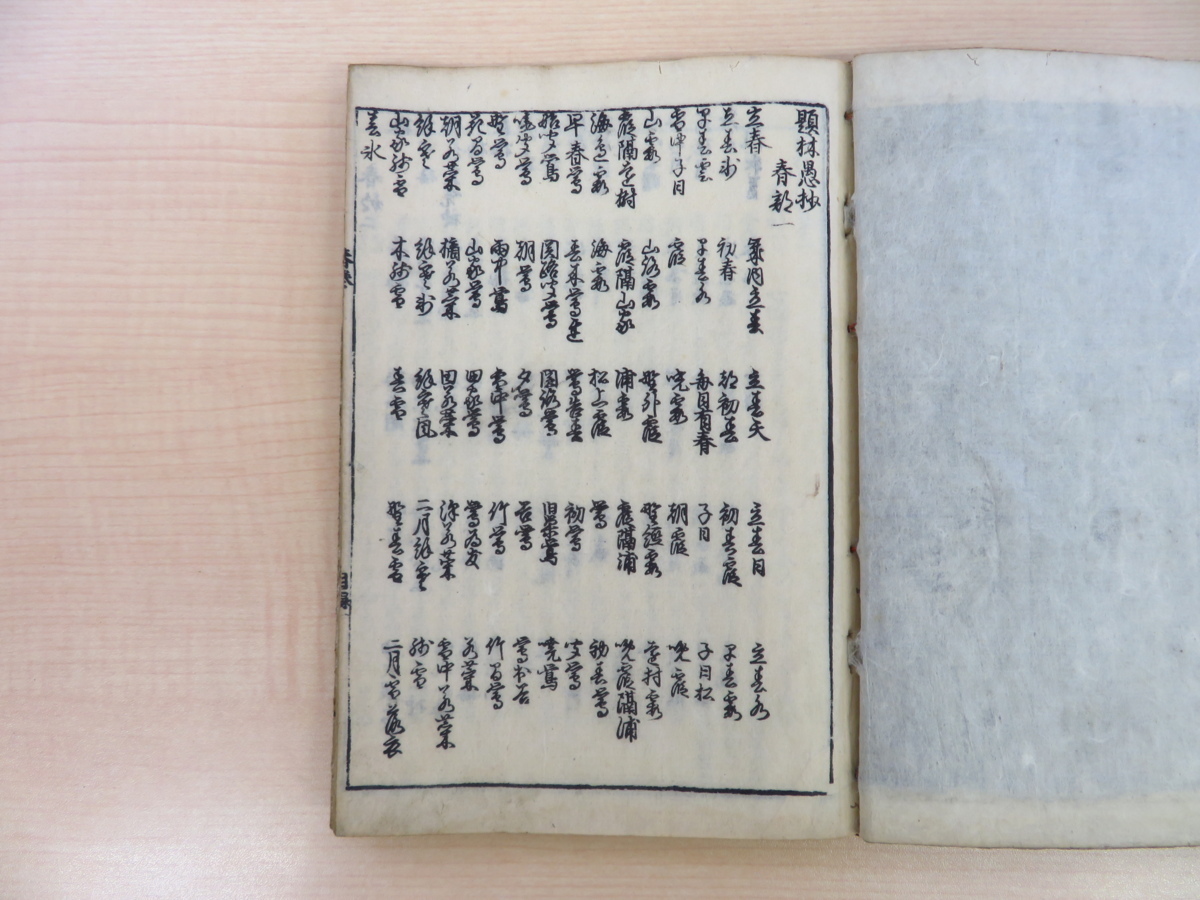 題林愚抄
春部一
立春 年内立春 立春天 立春日 立春水
立春氷 初春 都初春 初春霞 早春霞
早春雪 早春水 毎日有春 子日 子日松
雪中子日 霞 暁霞 朝霞 晩霞
山霞 山路霞 野外霞 野径霞 遠村霞
霞隔遠樹 霞隔山家 浦霞 霞隔浦 晩霞隔浦
海辺霞 海霞 松上霞 鶯 初春鶯
早春鶯 春来鶯遅 鶯告春 初鶯 聞鶯
始聞鶯 関路聞鶯 関路鶯 旧巣鶯 暁鶯
暁聞鶯 朝鶯 夕鶯 谷鶯 鶯出谷
野鶯 雨中鶯 雪中鶯 竹鶯 竹間鶯
花間鶯 山家鶯 田家鶯 鶯為友 若菜
朝若菜 摘若菜 田若菜 沢若菜 雪中若菜
余寒 余寒氷 余寒風 二月余寒 残雪
山家残雪 木残雪 春雪 野春雪 二月雪落衣
春氷
目録